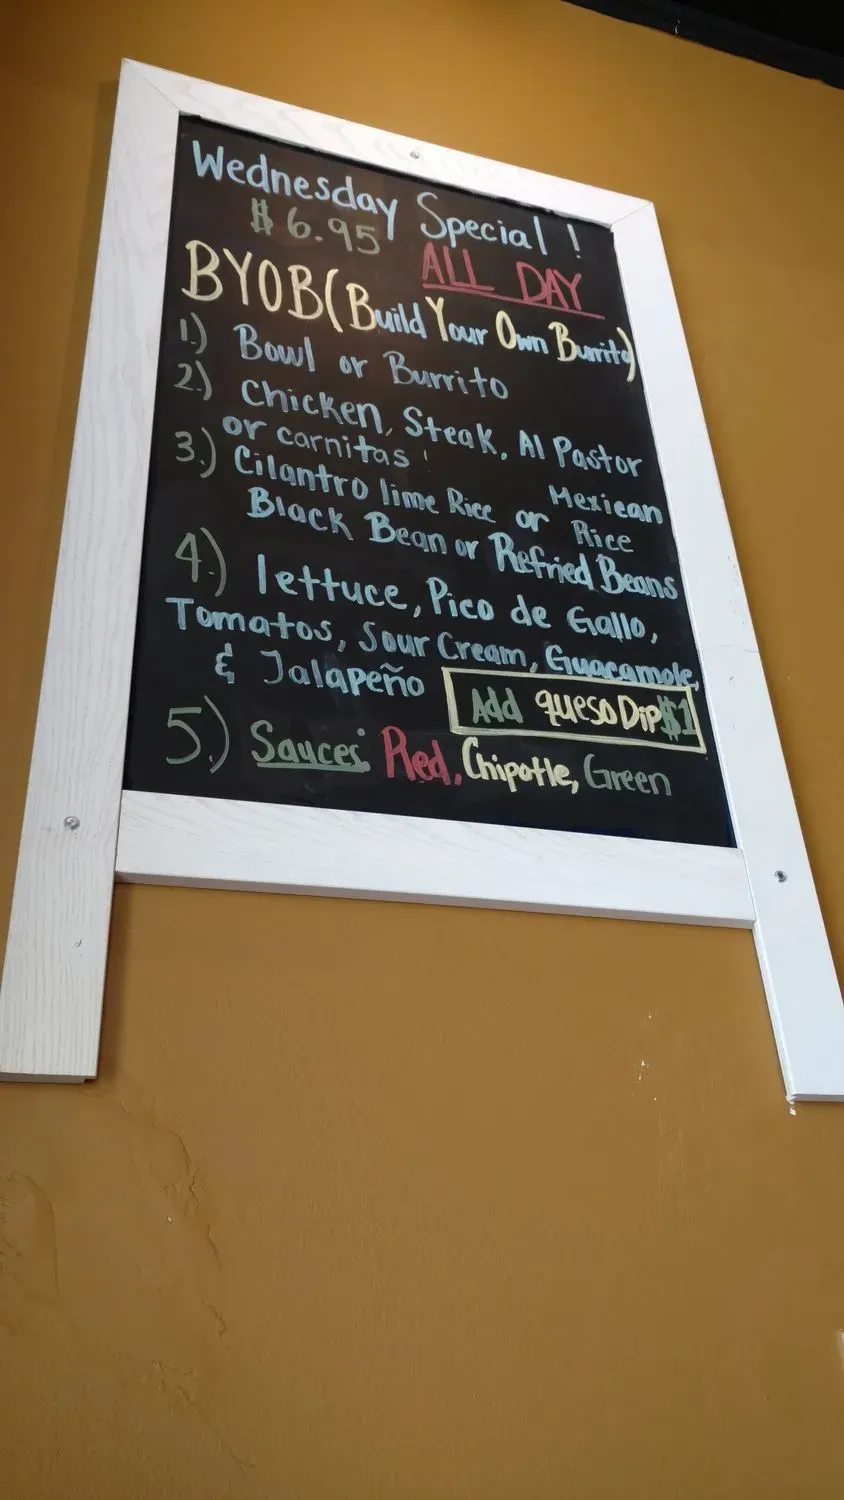 Wednesday Special!
$6.95 ALL DAY
BYOB (Build Your Own Burrito)
1.) Bowl or Burrito
2.) Chicken, Steak, Al Pastor
or carnitas
3.) Cilantro lime Rice or Mexican Rice
Black Bean or Refried Beans
4.) lettuce, Pico de Gallo,
Tomatos, Sour Cream, Guacamole,
& Jalapeño
Add queso Dip $1
5.) Sauces: Red, Chipotle, Green